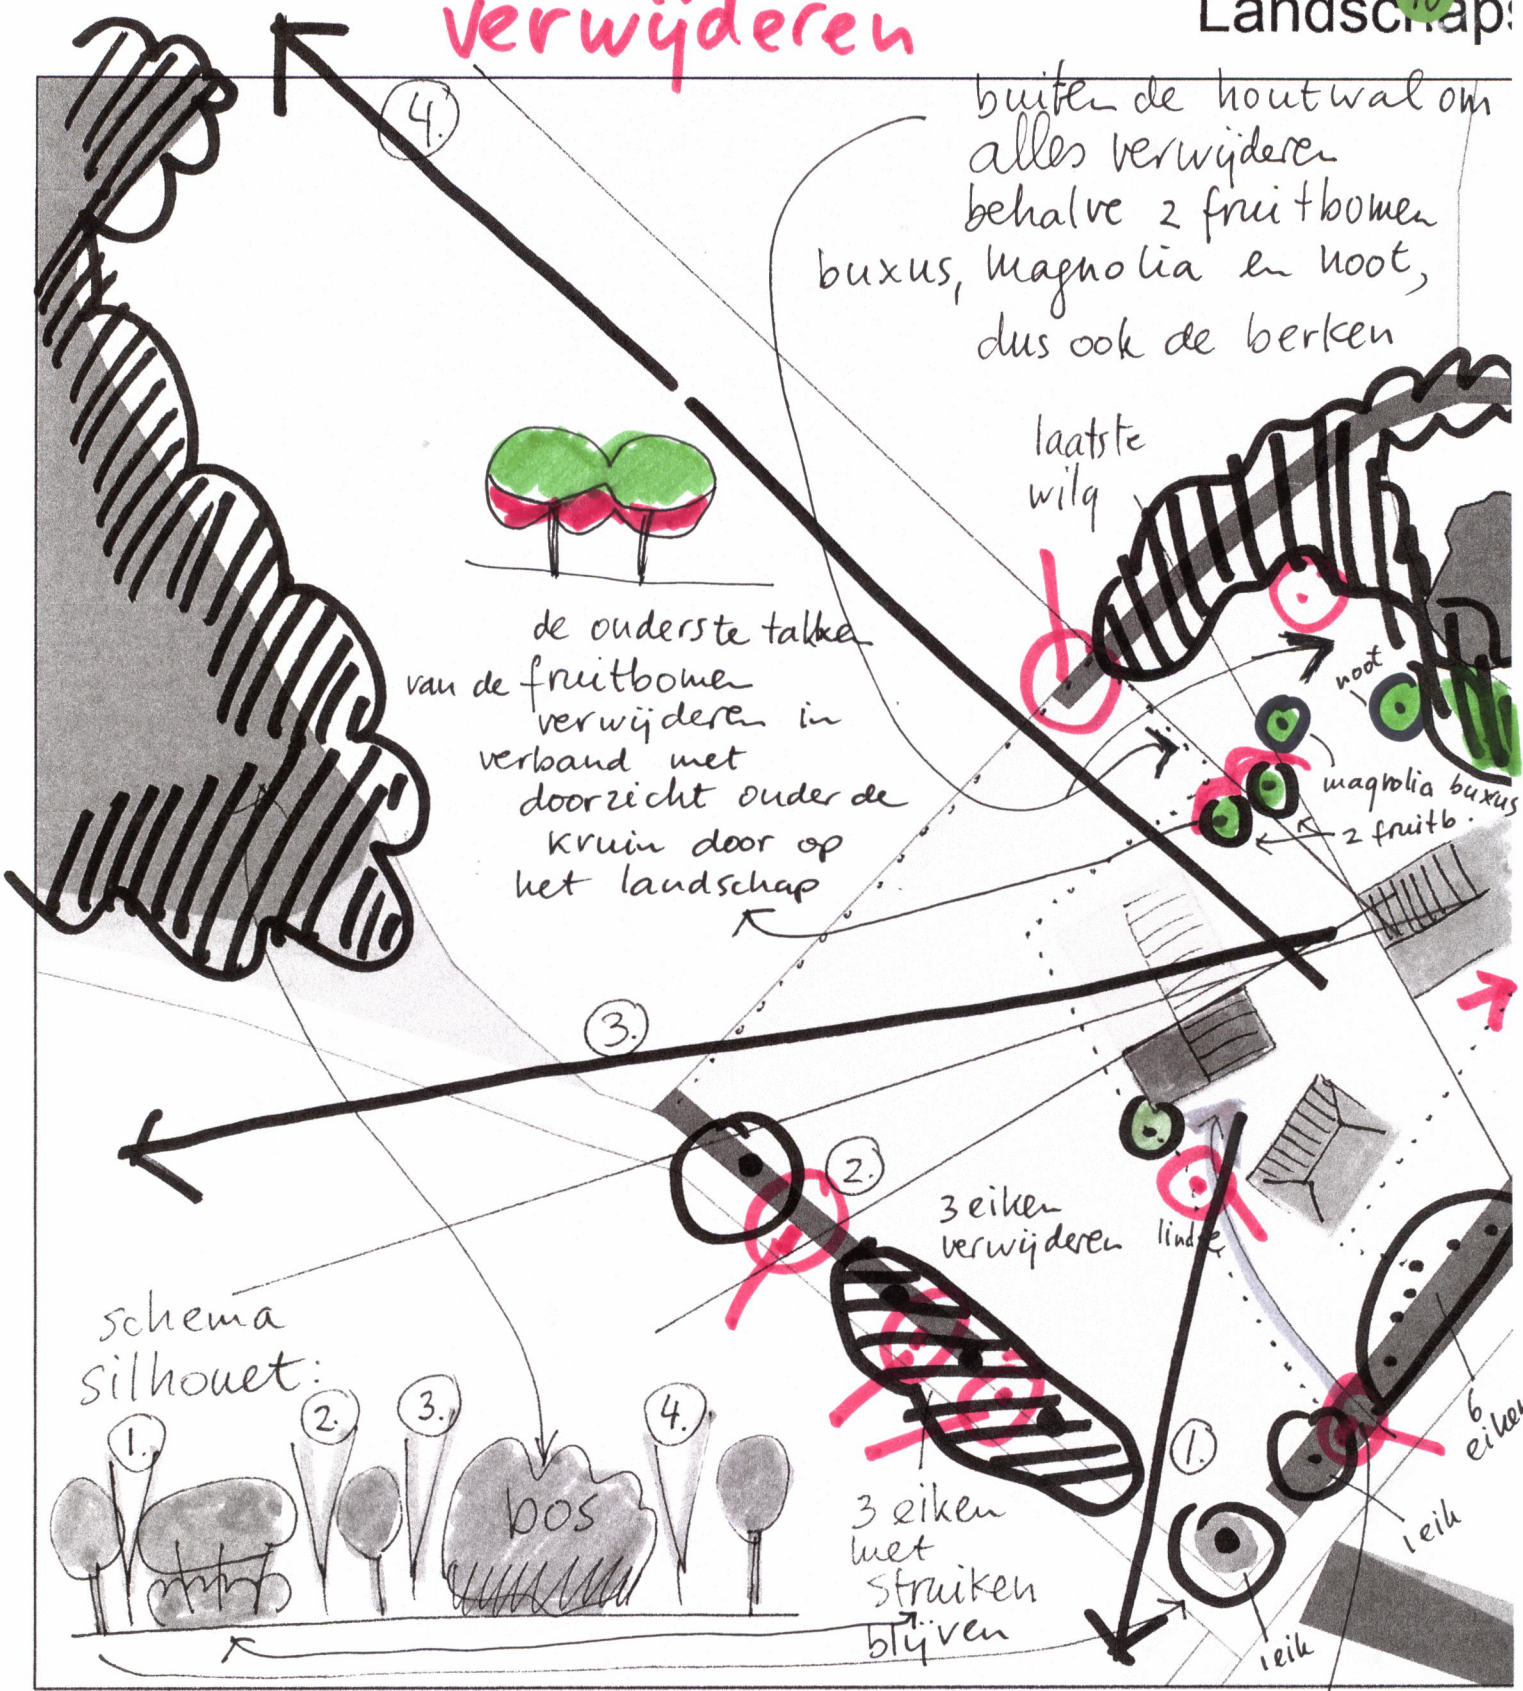 verwijderen
Landschaps
10
4.
buiten de houtwal om
alles verwijderen
behalve 2 fruitbomen
buxus, magnolia en noot,
dus ook de berken
laatste
wilg
de onderste takken
van de fruitbomen
verwijderen in
verband met
doorzicht onder de
kruin door op
het landschap
noot
magnolia buxus
2 fruitb.
3.
2.
3 eiken
verwijderen
linde
schema
silhouet:
1.
2.
3.
4.
bos
3 eiken
met
struiken
blijven
1.
6
eiken
1 eik
1 eik